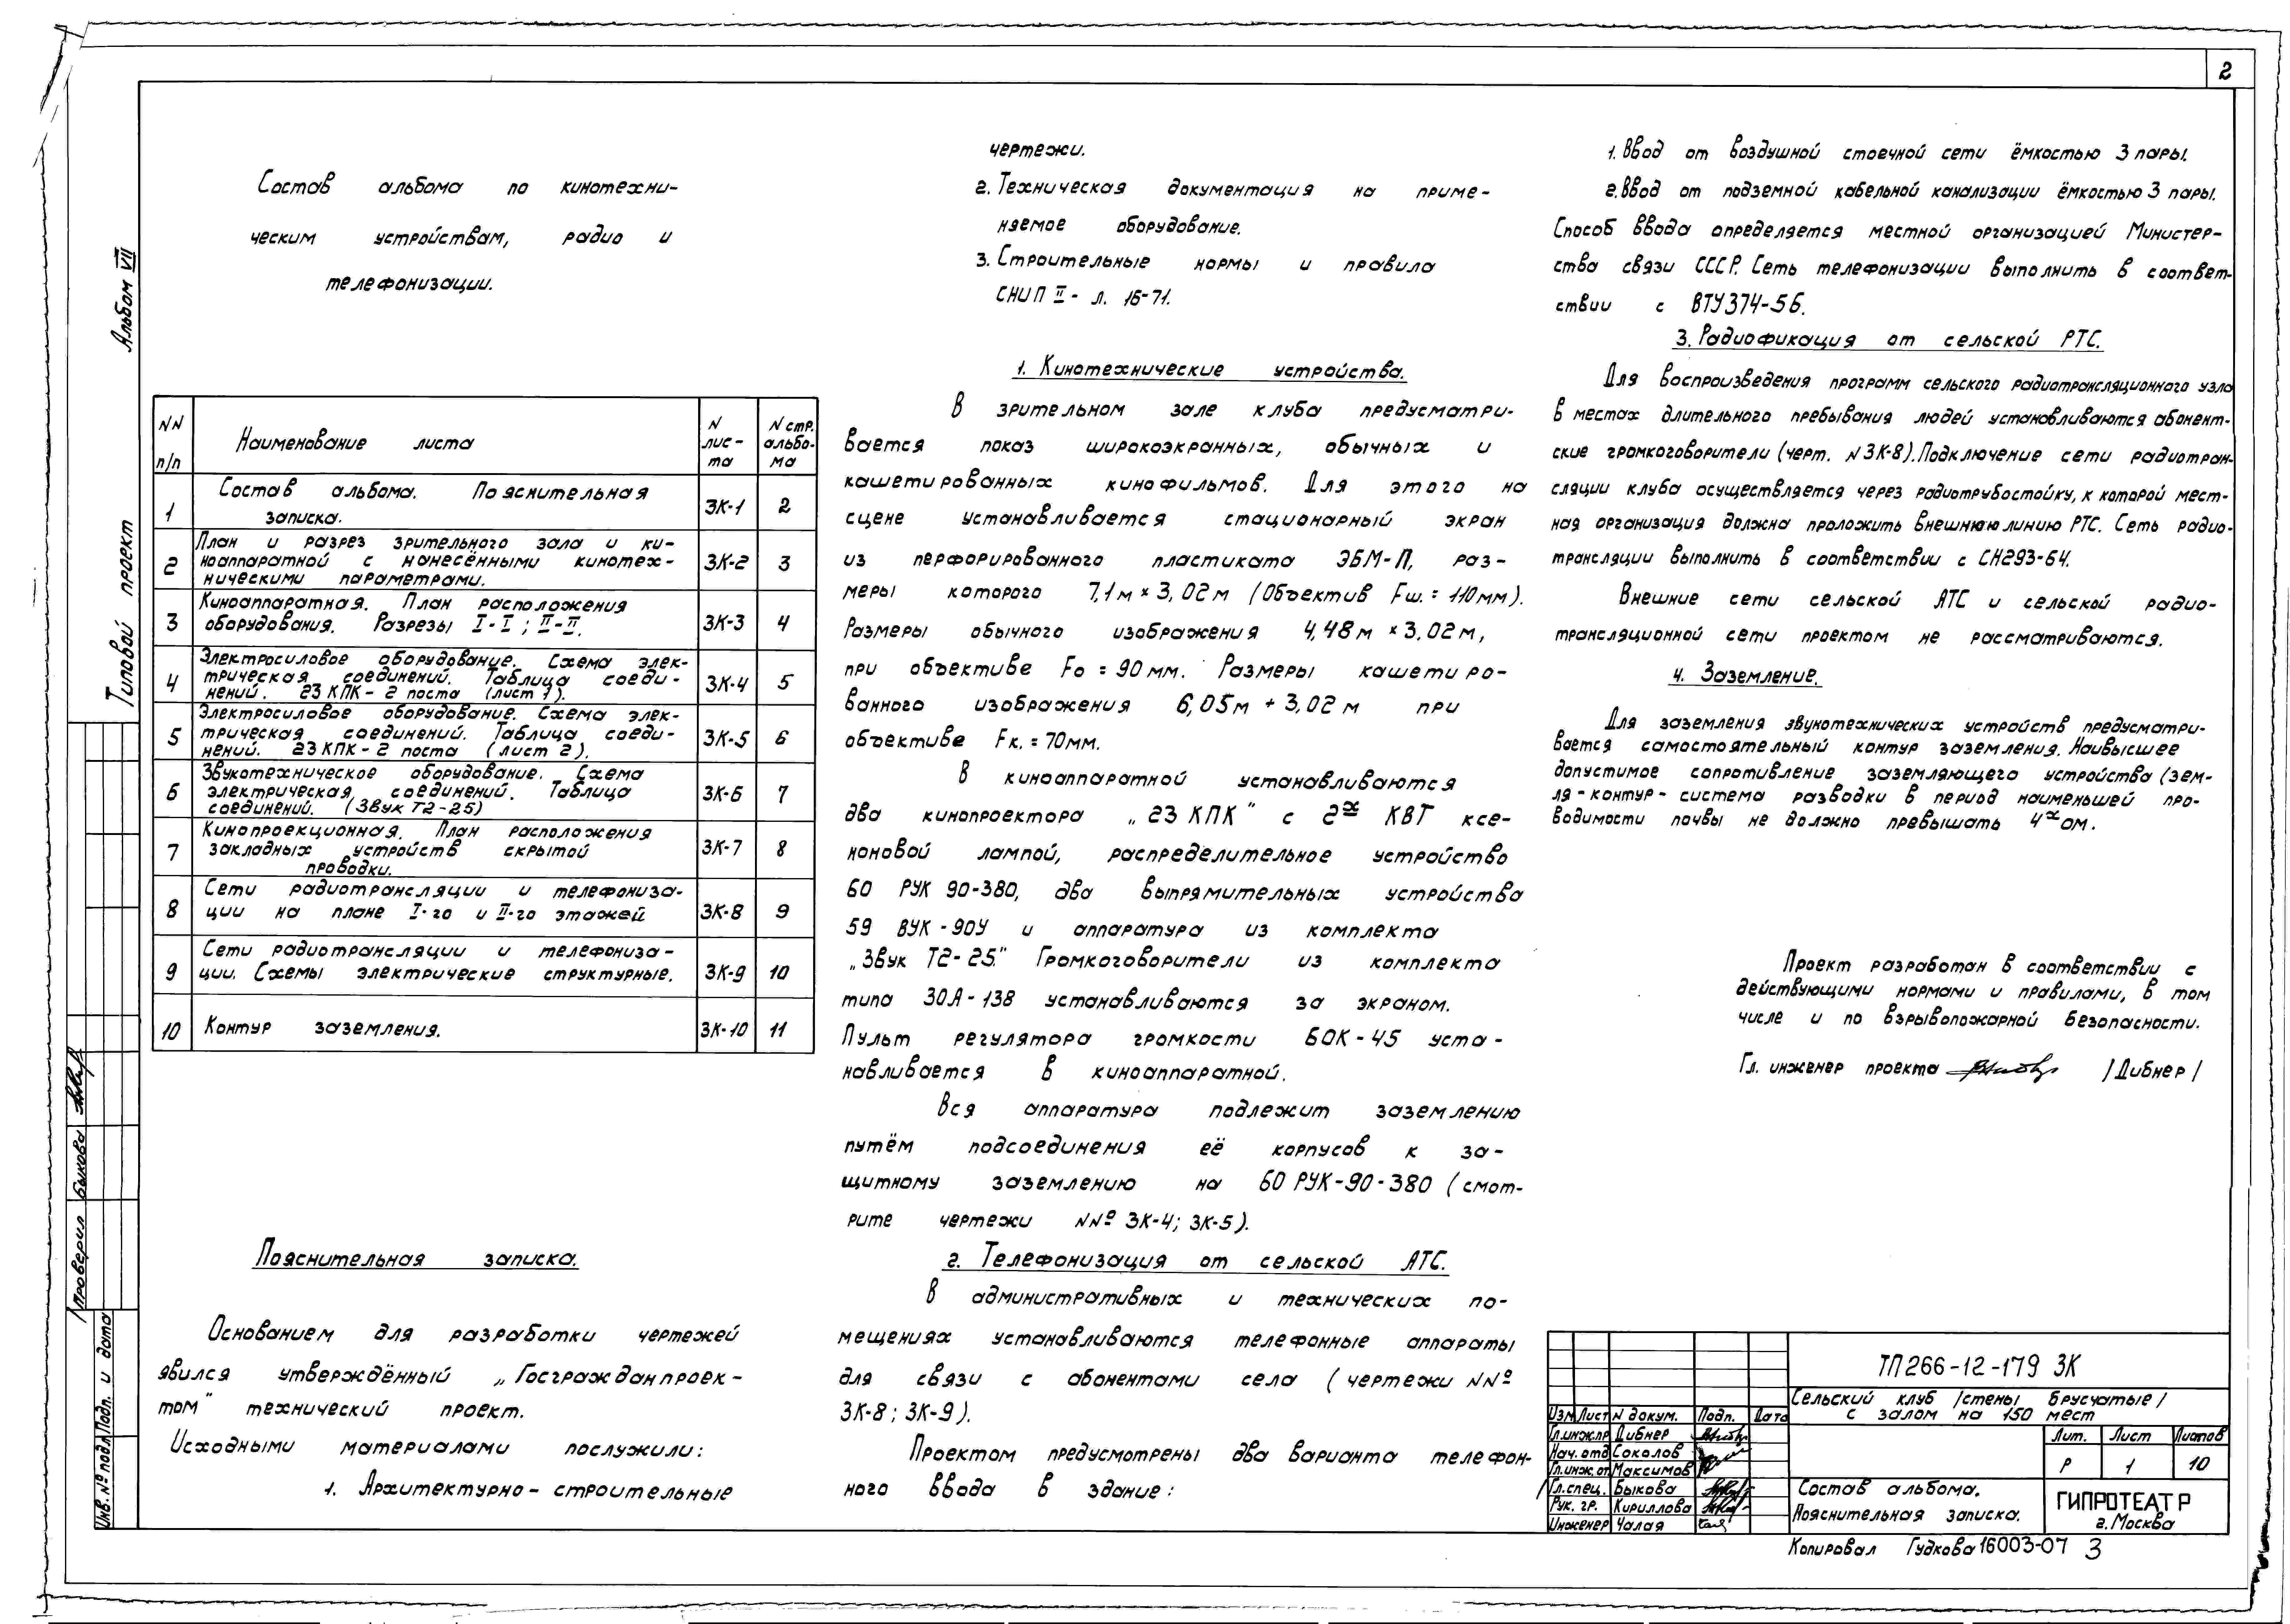 2
Альбом VII
Типовой проект
Состав альбома по кинотехни-
ческим устройствам, радио и
телефонизации.
NN п/п
Наименование листа
N лис-та
N стр. альбо-ма
1
Состав альбома. Пояснительная
записка.
ЗК-1
2
2
План и разрез зрительного зала и ки-
ноаппаратной с нанесёнными кинотех-
ническими параметрами.
ЗК-2
3
3
Киноаппаратная. План расположения
оборудования. Разрезы I-I; II-II.
ЗК-3
4
4
Электросиловое оборудование. Схема элек-
трическая соединений. Таблица соеди-
нений. 23 КПК-2 поста (лист 1).
ЗК-4
5
5
Электросиловое оборудование. Схема элек-
трическая соединений. Таблица соеди-
нений. 23 КПК-2 поста (лист 2).
ЗК-5
6
6
Звукотехническое оборудование. Схема
электрическая соединений. Таблица
соединений. (Звук Т2-25)
ЗК-6
7
7
Кинопроекционная. План расположения
закладных устройств скрытой
проводки.
ЗК-7
8
8
Сети радиотрансляции и телефониза-
ции на плане I-го и II-го этажей
ЗК-8
9
9
Сети радиотрансляции и телефониза-
ции. Схемы электрические структурные.
ЗК-9
10
10
Контур заземления.
ЗК-10
11
Пояснительная записка.
Основанием для разработки чертежей
явился утверждённый „Госгражданпроек-
том" технический проект.
Исходными материалами послужили:
1. Архитектурно-строительные
чертежи.
2. Техническая документация на приме-
няемое оборудование.
3. Строительные нормы и правила
СНИП II-Л. 16-71.
1. Кинотехнические устройства.
В зрительном зале клуба предусматри-
вается показ широкоэкранных, обычных и
кашетированных кинофильмов. Для этого на
сцене устанавливается стационарный экран
из перфорированного пластиката ЭБМ-П, раз-
меры которого 7,1м × 3,02м (Объектив Fш. = 110мм).
Размеры обычного изображения 4,48м × 3,02м,
при объективе Fо = 90мм. Размеры кашетиро-
ванного изображения 6,05м + 3,02м при
объективе Fк. = 70мм.
В киноаппаратной устанавливаются
два кинопроектора „23 КПК" с 2х КВТ ксе-
ноновой лампой, распределительное устройство
60 РУК 90-380, два выпрямительных устройства
59 ВУК-90У и аппаратура из комплекта
„Звук Т2-25." Громкоговорители из комплекта
типа 30А-138 устанавливаются за экраном.
Пульт регулятора громкости 60К-45 уста-
навливается в киноаппаратной.
Вся аппаратура подлежит заземлению
путём подсоединения её корпусов к за-
щитному заземлению на 60 РУК-90-380 (смот-
рите чертежи NNº ЗК-4; ЗК-5).
2. Телефонизация от сельской АТС.
В административных и технических по-
мещениях устанавливаются телефонные аппараты
для связи с абонентами села (чертежи NNº
ЗК-8; ЗК-9).
Проектом предусмотрены два варианта телефон-
ного ввода в здание:
1. Ввод от воздушной стоечной сети ёмкостью 3 пары.
2. Ввод от подземной кабельной канализации ёмкостью 3 пары.
Способ ввода определяется местной организацией Министер-
ства связи СССР. Сеть телефонизации выполнить в соответ-
ствии с ВТУ374-56.
3. Радиофикация от сельской РТС.
Для воспроизведения программ сельского радиотрансляционного узла
в местах длительного пребывания людей устанавливаются абонент-
ские громкоговорители (черт. N ЗК-8). Подключение сети радиотран-
сляции клуба осуществляется через радиотрубостойку, к которой мест-
ная организация должна проложить внешнюю линию РТС. Сеть радио-
трансляции выполнить в соответствии с СН293-64.
Внешние сети сельской АТС и сельской радио-
трансляционной сети проектом не рассматриваются.
4. Заземление.
Для заземления звукотехнических устройств предусматри-
вается самостоятельный контур заземления. Наивысшее
допустимое сопротивление заземляющего устройства (зем-
ля-контур-система разводки в период наименьшей про-
водимости почвы не должно превышать 4х ом.
Проект разработан в соответствии с
действующими нормами и правилами, в том
числе и по взрывопожарной безопасности.
Гл. инженер проекта /Дибнер/
Проверил Быкова
Инв. Nº подл Подп. и дата
ТП 266-12-179 ЗК
Сельский клуб /стены брусчатые/
с залом на 150 мест
Изм Лист N докум. Подп. Дата
Гл.инж.пр Дибнер
Нач. отд Соколов
Гл.инж.от Максимов
Гл.спец. Быкова
Рук. гр. Кириллова
Инженер Чалая
Лит. Лист Листов
Р 1 10
Состав альбома.
Пояснительная записка.
ГИПРОТЕАТР
г. Москва
Копировал Гудкова 16003-07 3